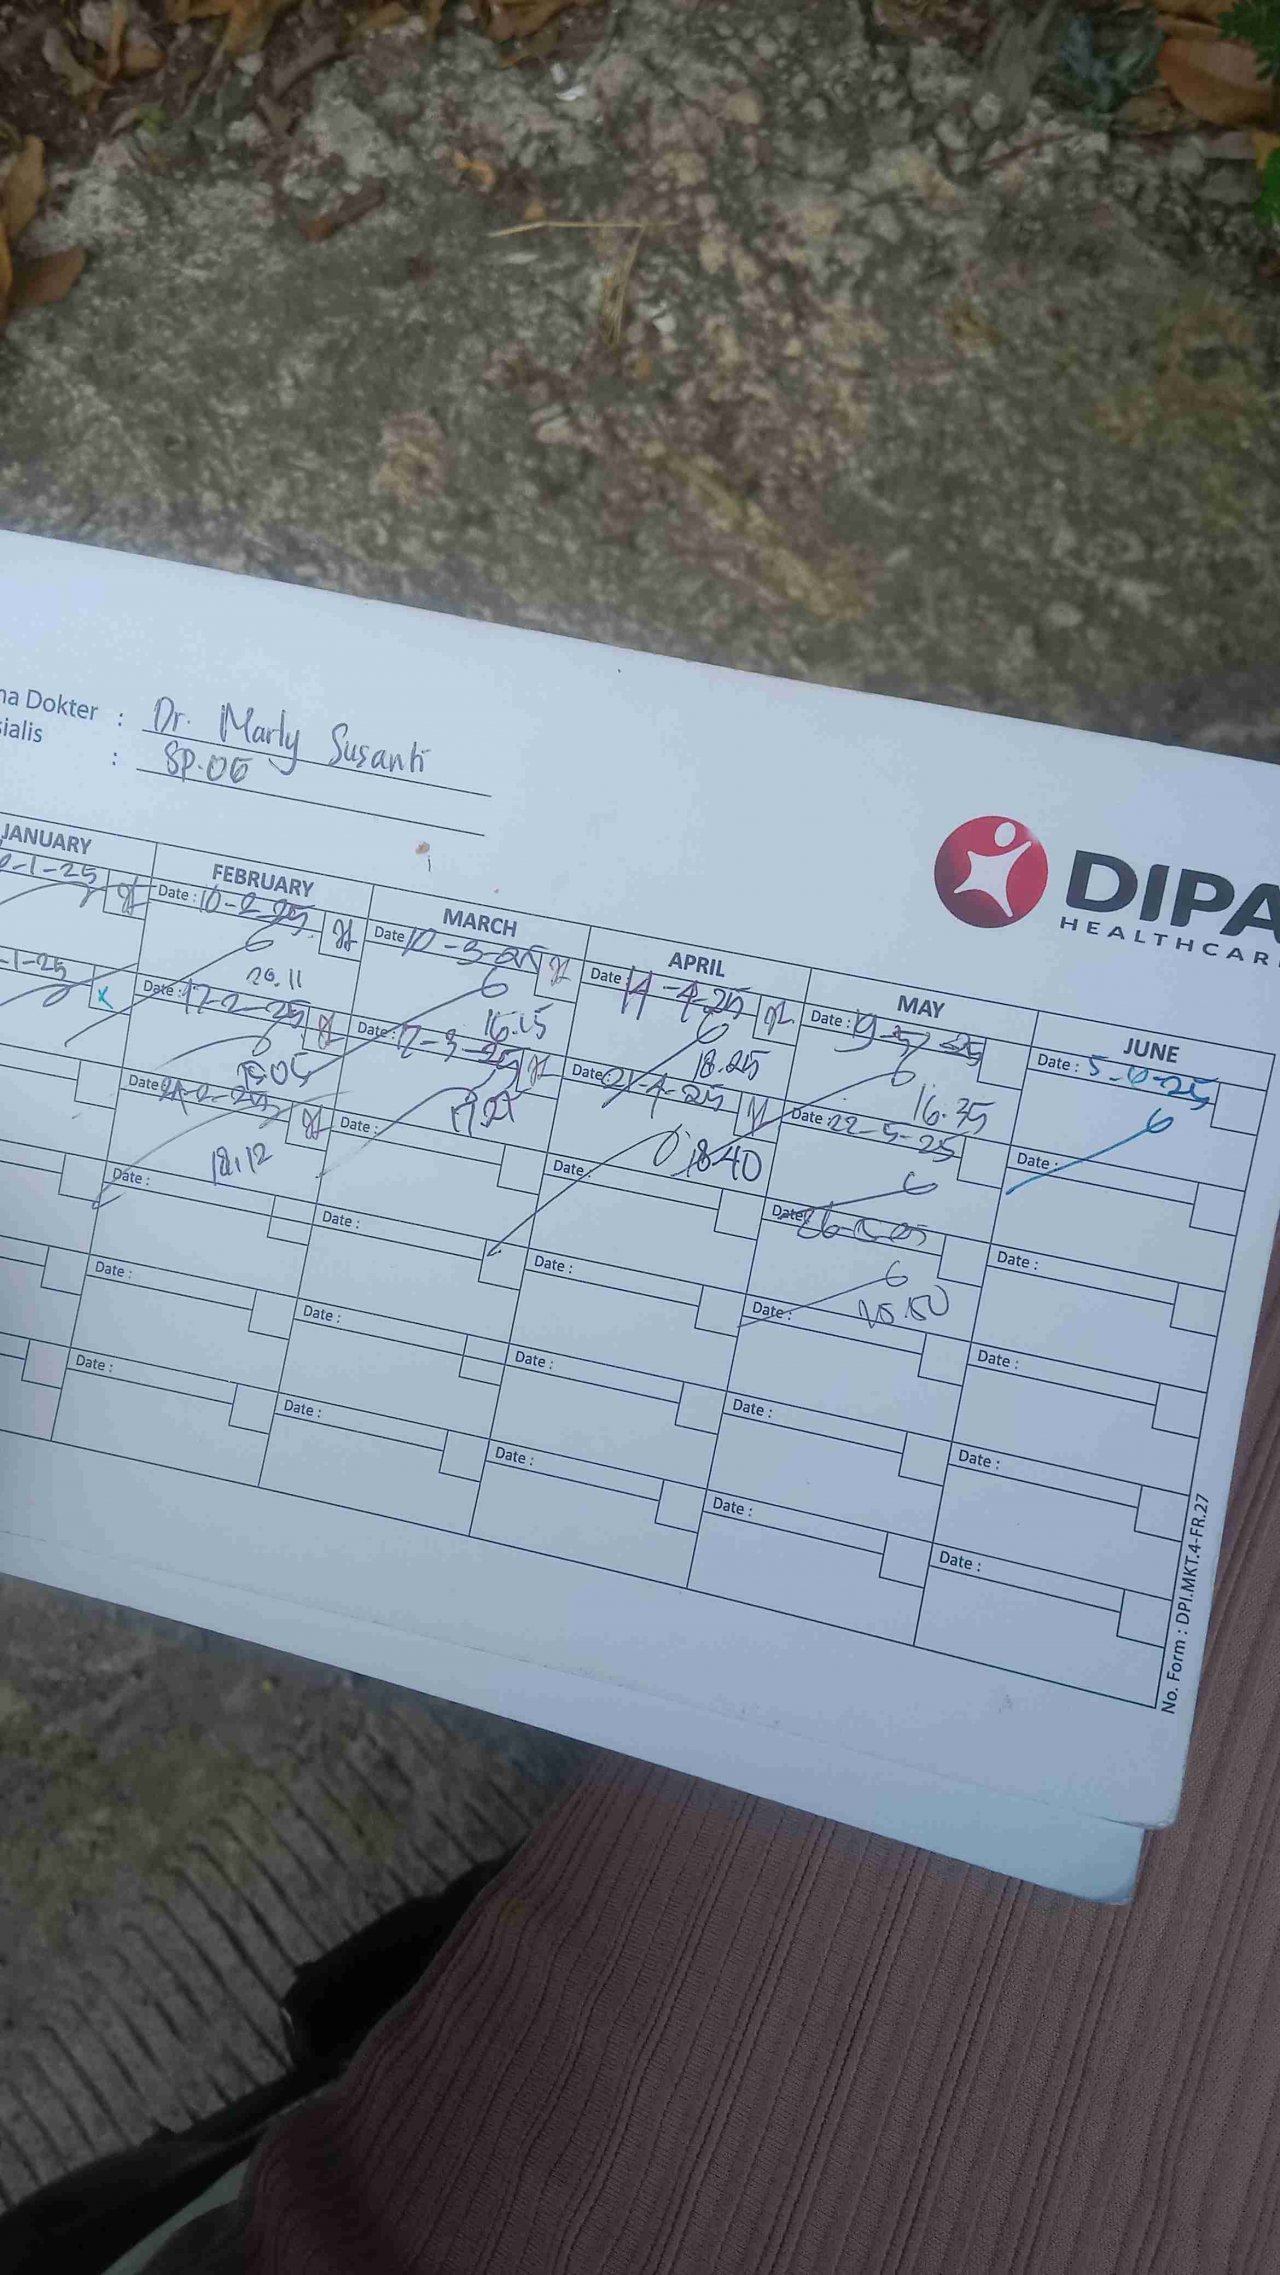 na Dokter : Dr. Marly Susanti
sialis : SP.OG
DIPA
HEALTHCAR
JANUARY FEBRUARY MARCH APRIL MAY JUNE
-1-25 Date : 10-2-25 Date 10-3-25 Date : 14-4-25 Date : 19-5-25 Date : 5-6-25
20.11 16.15 18.25 16.35
-1-25 Date : 17-2-25 Date : 17-3-25 Date : 21-4-25 Date : 22-5-25 Date :
19.05 18.40
Date : 24-2-25 Date : Date : Date : 26-5-25 Date :
18.12 15.50
Date : Date : Date : Date : Date :
Date : Date : Date : Date : Date :
Date : Date : Date : Date : Date :
No. Form : DPI.MKT.4-FR.27